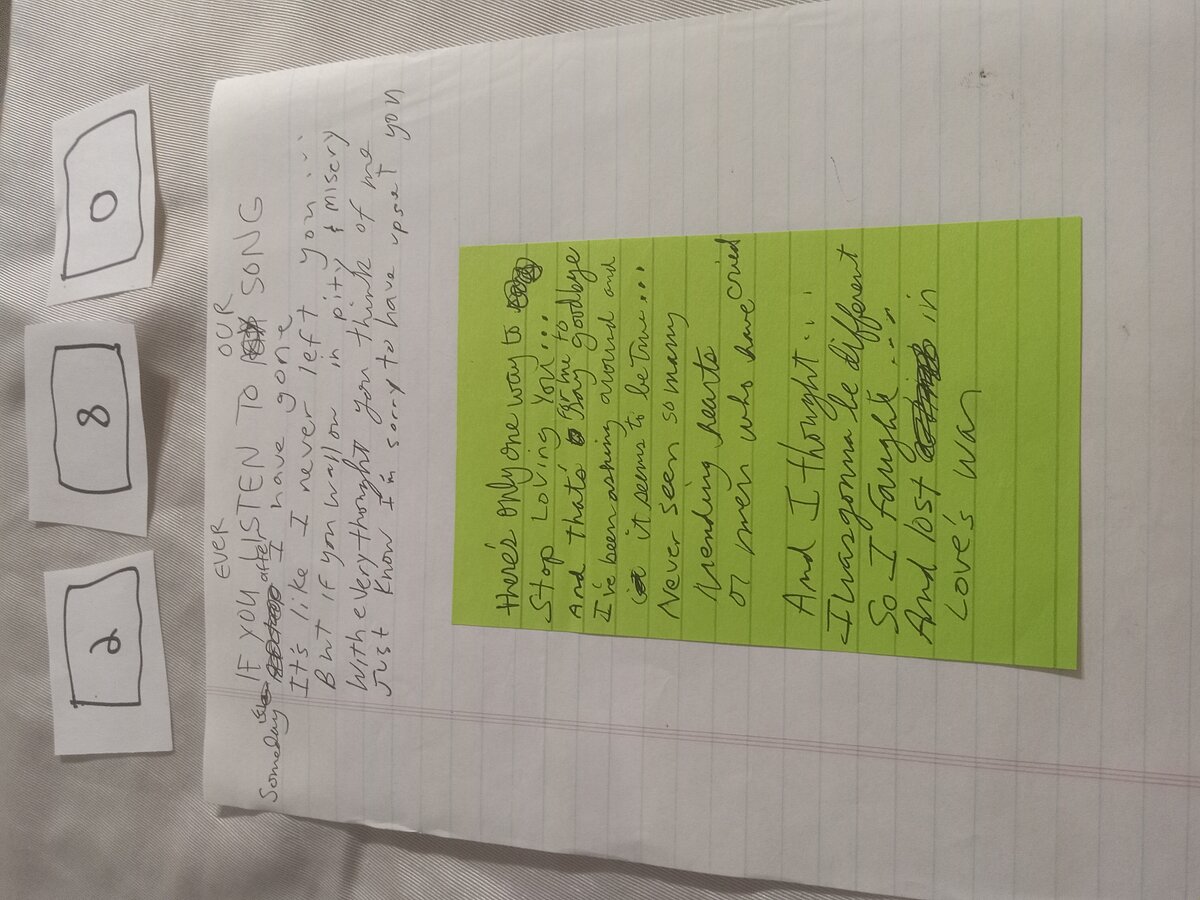 2 8 0
EVER OUR
IF YOU LISTEN TO SONG
Someday after I have gone
It's like I never left you...
But if you wallow in pity & misery
With every thought you think of me
Just know I'm sorry to have upset you
There's only one way to
Stop Loving you...
And that's for me to say goodbye
I've been asking around and
it seems to be true...
Never seen so many
mending hearts
or men who have cried
And I thought...
I was gonna be different
So I Faught...
And lost in
Love's War